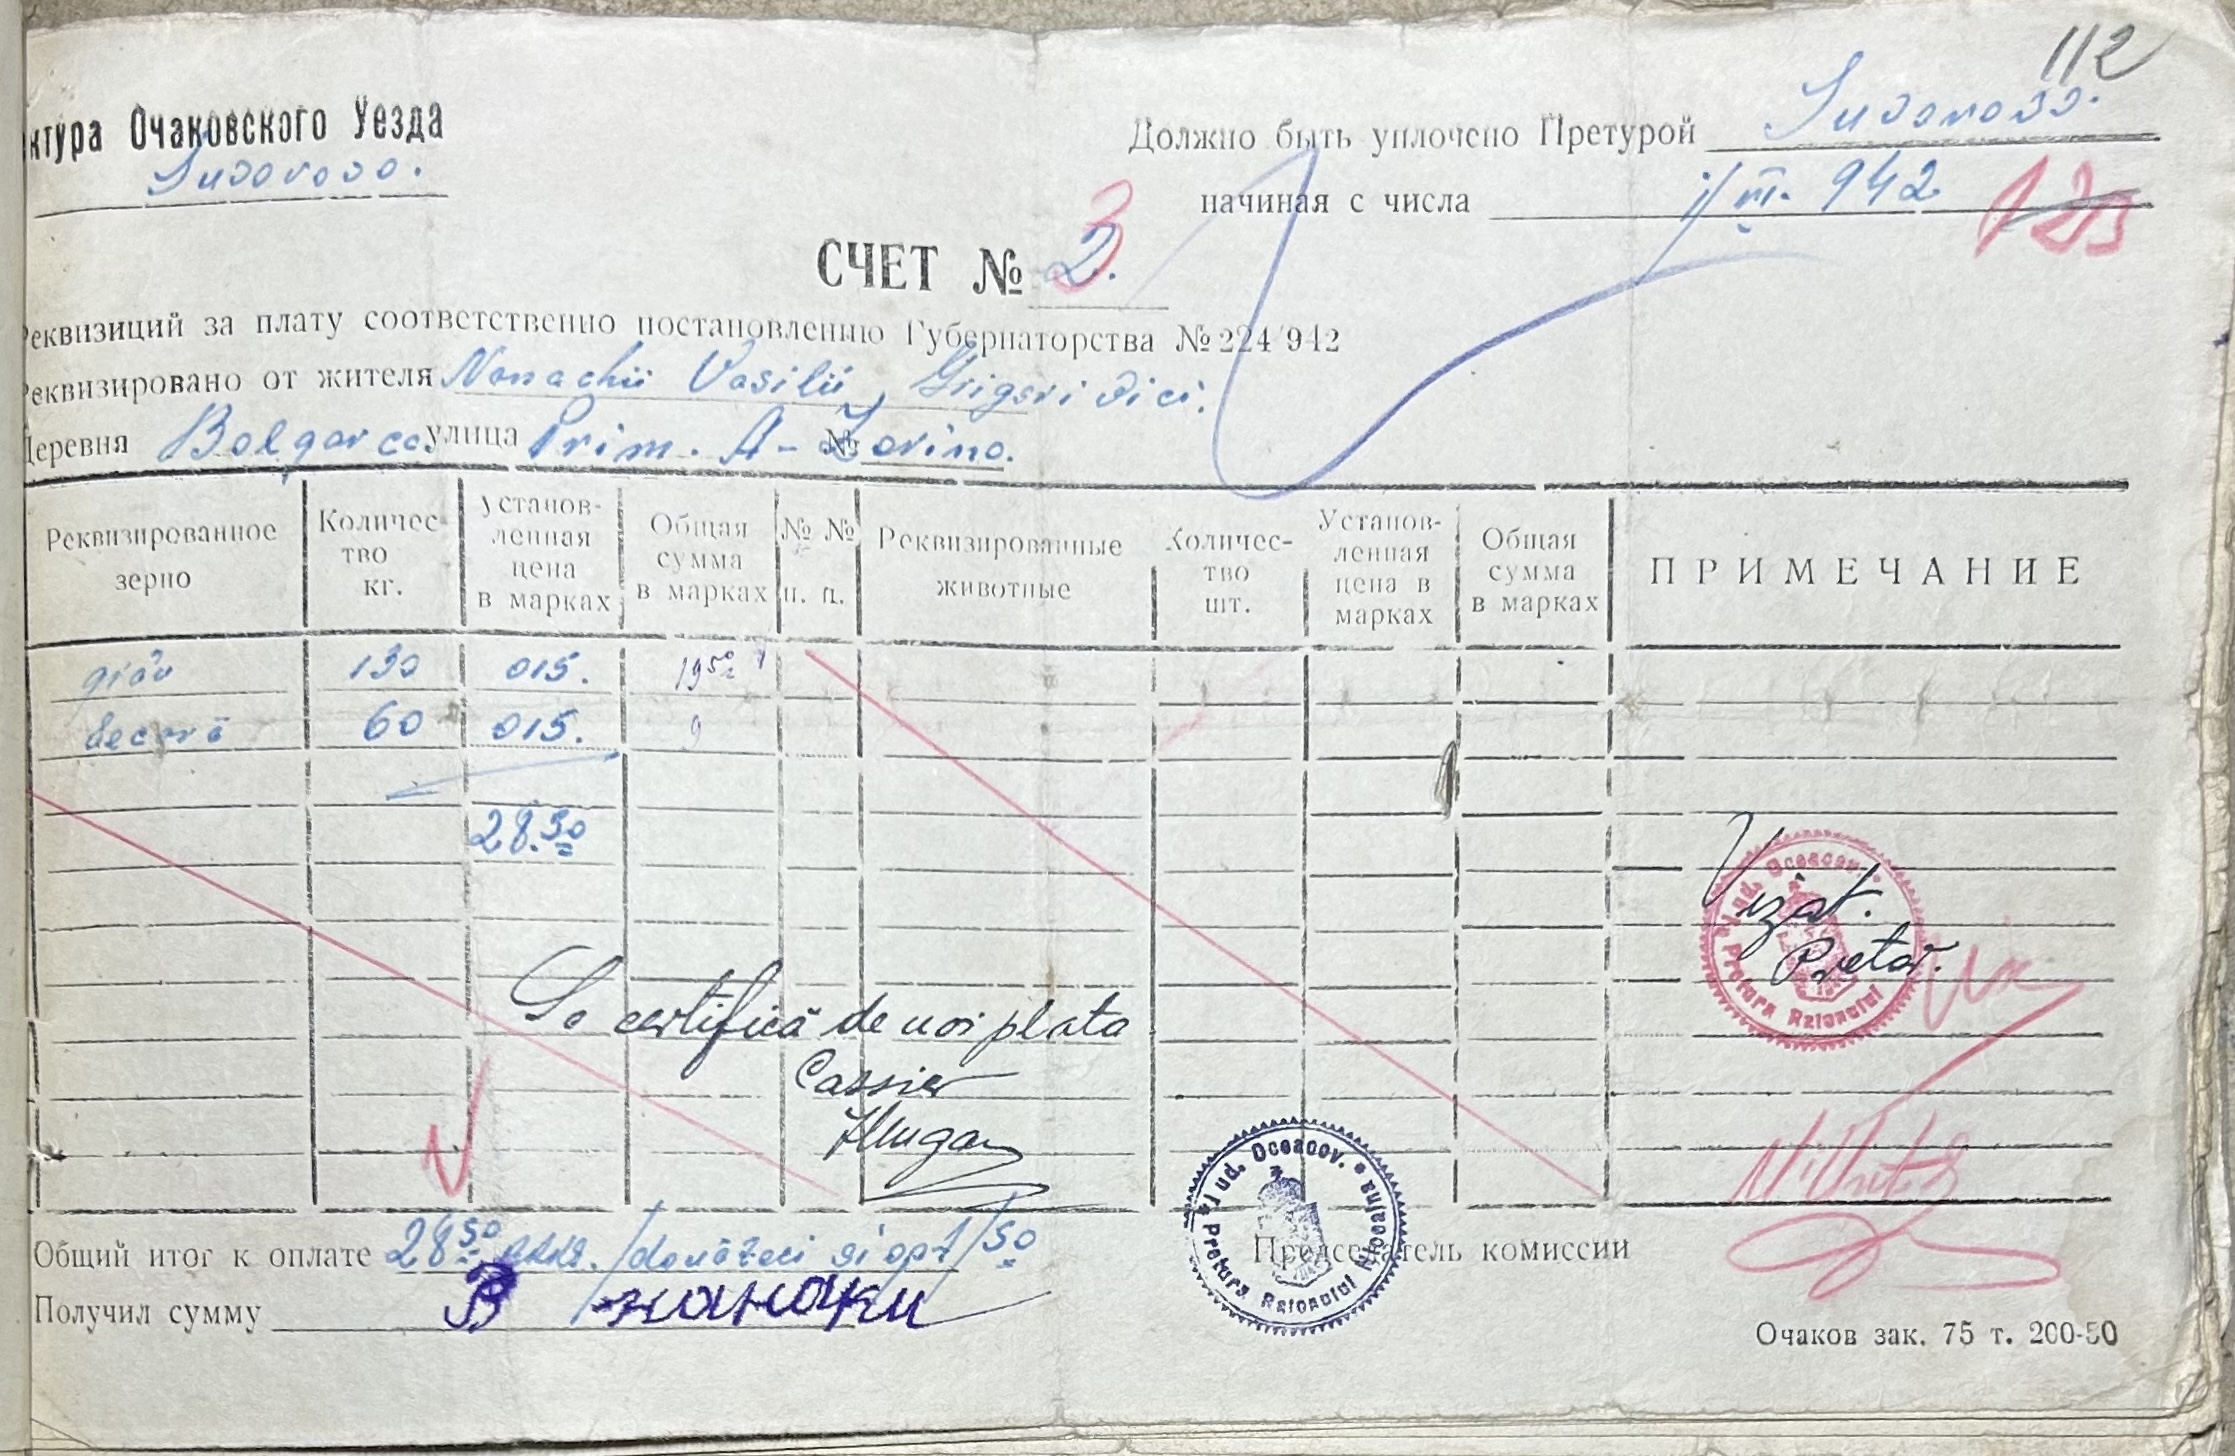 112
ктура Очаковского Уезда
Suvorovo.
Должно быть уплочено Претурой Suvorovo.
начиная с числа 1/VI. 942
125
СЧЕТ № 2. 3
Реквизиций за плату соответственно постановлению Губернаторства № 224/942
Реквизировано от жителя Nanachii Vasilii Grigorivici.
Деревня Bolgarca улица Prim. A- № Zorino.
Реквизированное зерно
Количество кг.
Установленная цена в марках
Общая сумма в марках
№ № п. п.
Реквизированные животные
Количество шт.
Установленная цена в марках
Общая сумма в марках
ПРИМЕЧАНИЕ
grâu 130 015. 19 50
secară 60 015. 9
28.50
Vizat.
Pretor.
Jud. Oceacov. Pretura Raionului
Se certifică de noi plata
Cassier
Jud. Oceacov. Pretura Raionului Nicolaina
Общий итог к оплате 28 50 /douăzeci și opt/50
Председатель комиссии
Получил сумму В наначки
Очаков зак. 75 т. 200-50